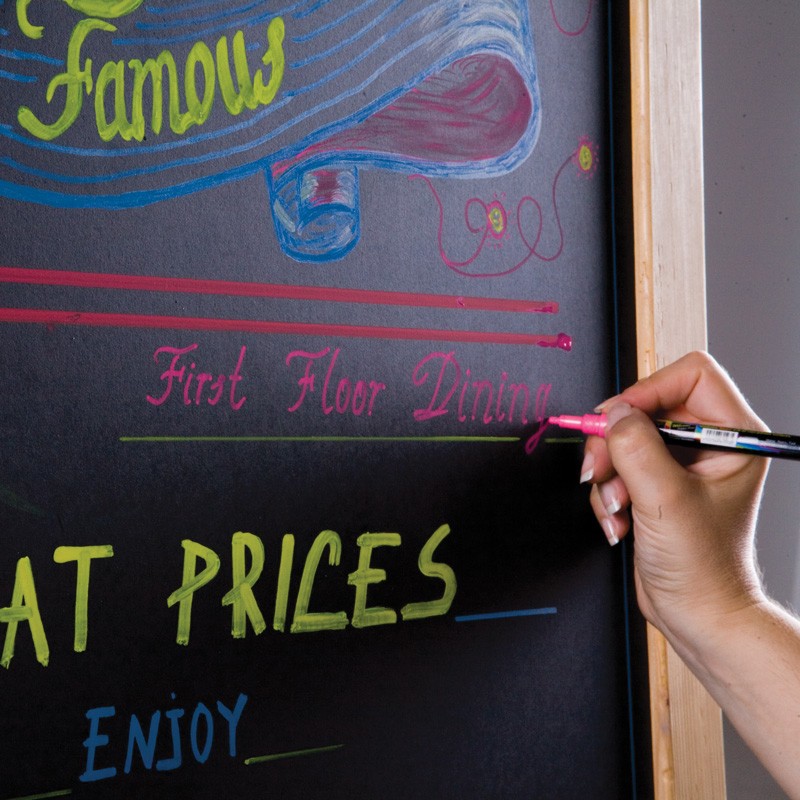 Famous
First Floor Dining
AT PRICES
ENJOY